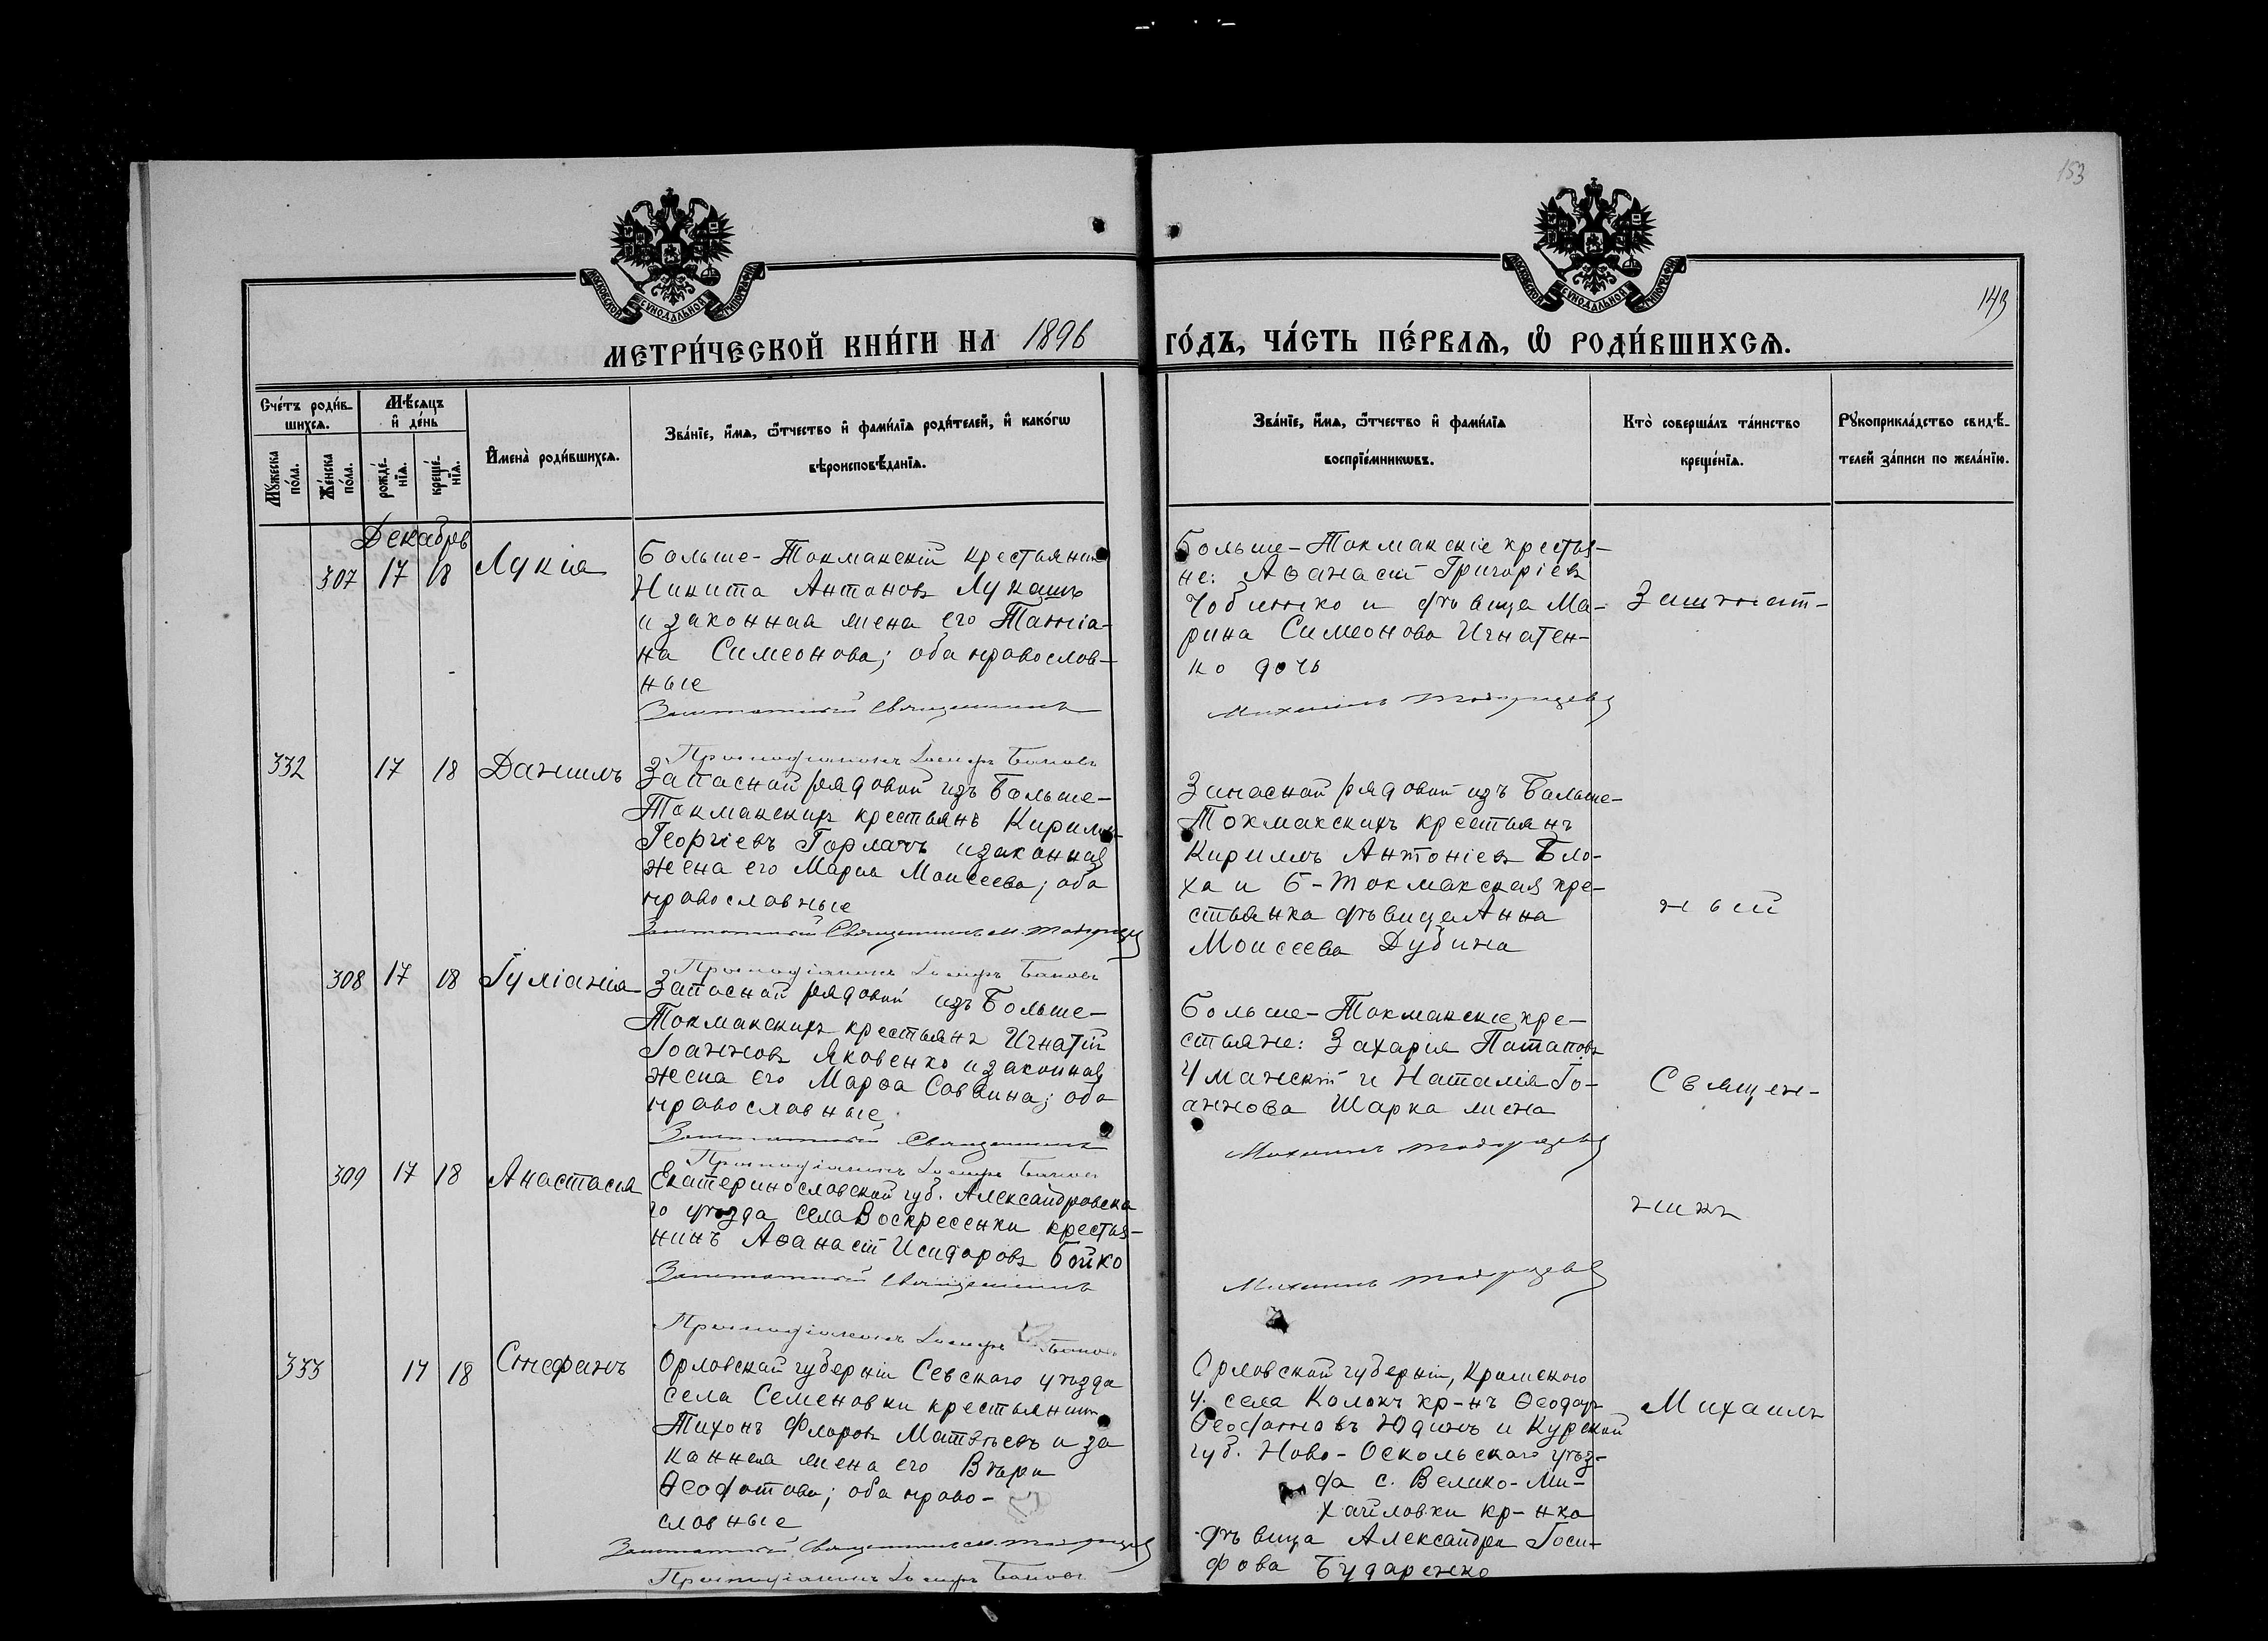 153
МОСКОВСКОЙ СѴНОДАЛЬНОЙ ТИПОГРАФІИ
МОСКОВСКОЙ СѴНОДАЛЬНОЙ ТИПОГРАФІИ
143
МЕТРИ́ЧЕСКОЙ КНИ́ГИ НА 1896 ГО́ДЪ, ЧА́СТЬ ПЕ́РВАѦ, Ѽ РОДИ́ВШИХСѦ.
Сче́тъ роди́в-
шихсѧ.
Мꙋ́жеска
по́ла.
Же́нска
по́ла.
Мѣ́сѧцъ
и҆ де́нь
рожде́-
нїѧ.
креще́-
нїѧ.
И҆мена̀ роди́вшихсѧ.
Зва́нїе, и҆́мѧ, ѻ҆́тчество и҆ фами́лїѧ роди́телей, и҆ како́гѡ
вѣроисповѣ́данїѧ.
Зва́нїе, и҆́мѧ, ѻ҆́тчество и҆ фами́лїѧ
воспрїе́мникѡвъ.
Кто̀ соверша́лъ та́инство
креще́нїѧ.
Рꙋкоприкла́дство свидѣ́-
телей за́писи по жела́нїю.
Декабрь
307 17 18 Лукія
Больше-Токмакскій крестьянинъ
Никита Антоновъ Лукашъ
и законная жена его Татіа-
на Симеонова; оба православ-
ные
Заштатный Священникъ
Больше-Токмакскіе крестья-
не: Аѳанасій Григоріевъ
и дѣвица Ма-
рина Симеонова Игнатен-
ко дочь
Михаилъ
Заштат-
332 17 18 Даніилъ
Іосифъ Баковъ
Запасный рядовой изъ Больше-
Токмакскихъ крестьянъ Кириллъ
Георгіевъ Горлачъ и законная
жена его Марія Моисеева; оба
православные
Заштатный Священникъ М.
Запасный рядовой изъ Больше-
Токмакскихъ крестьянъ
Кириллъ Антоніевъ Бло-
ха и Б-Токмакская кре-
стьянка дѣвица Анна
Моисеева Дубина
ный
308 17 18 Іуліанія
Іосифъ Баковъ
Запасный рядовой изъ Больше-
Токмакскихъ крестьянъ Игнатій
Іоанновъ Яковенко и законная
жена его Марѳа Саввина; оба
православные
Заштатный Священникъ
Больше-Токмакскіе кре-
стьяне: Захарія Потаповъ
Уманскій и Наталія Іо-
аннова Шарка жена
Михаилъ
Священ-
309 17 18 Анастасія
Іосифъ Баковъ
Екатеринославской губ. Александровска
го уѣзда села Воскресенки крестья-
нинъ Аѳанасій Исидоровъ Бойко
Заштатный Священникъ
Михаилъ
никъ
Іосифъ Баковъ
333 17 18 Стефанъ
Орловской губерніи Севскаго уѣзда
села Семеновки крестьянинъ
Тихонъ Флоровъ Матвѣевъ и за
конная жена его Вѣра
Ѳеофотова; оба право-
славные
Заштатный Священникъ М.
Іосифъ Баковъ
Орловской губерніи,
у. села кр-нъ Ѳеодоръ
Юдинъ и Курской
губ. Ново-Оскольскаго уѣз-
да с. Велико-Ми-
хайловки кр-нка
дѣвица Александра Іоси-
фова Бударенко
Михаилъ